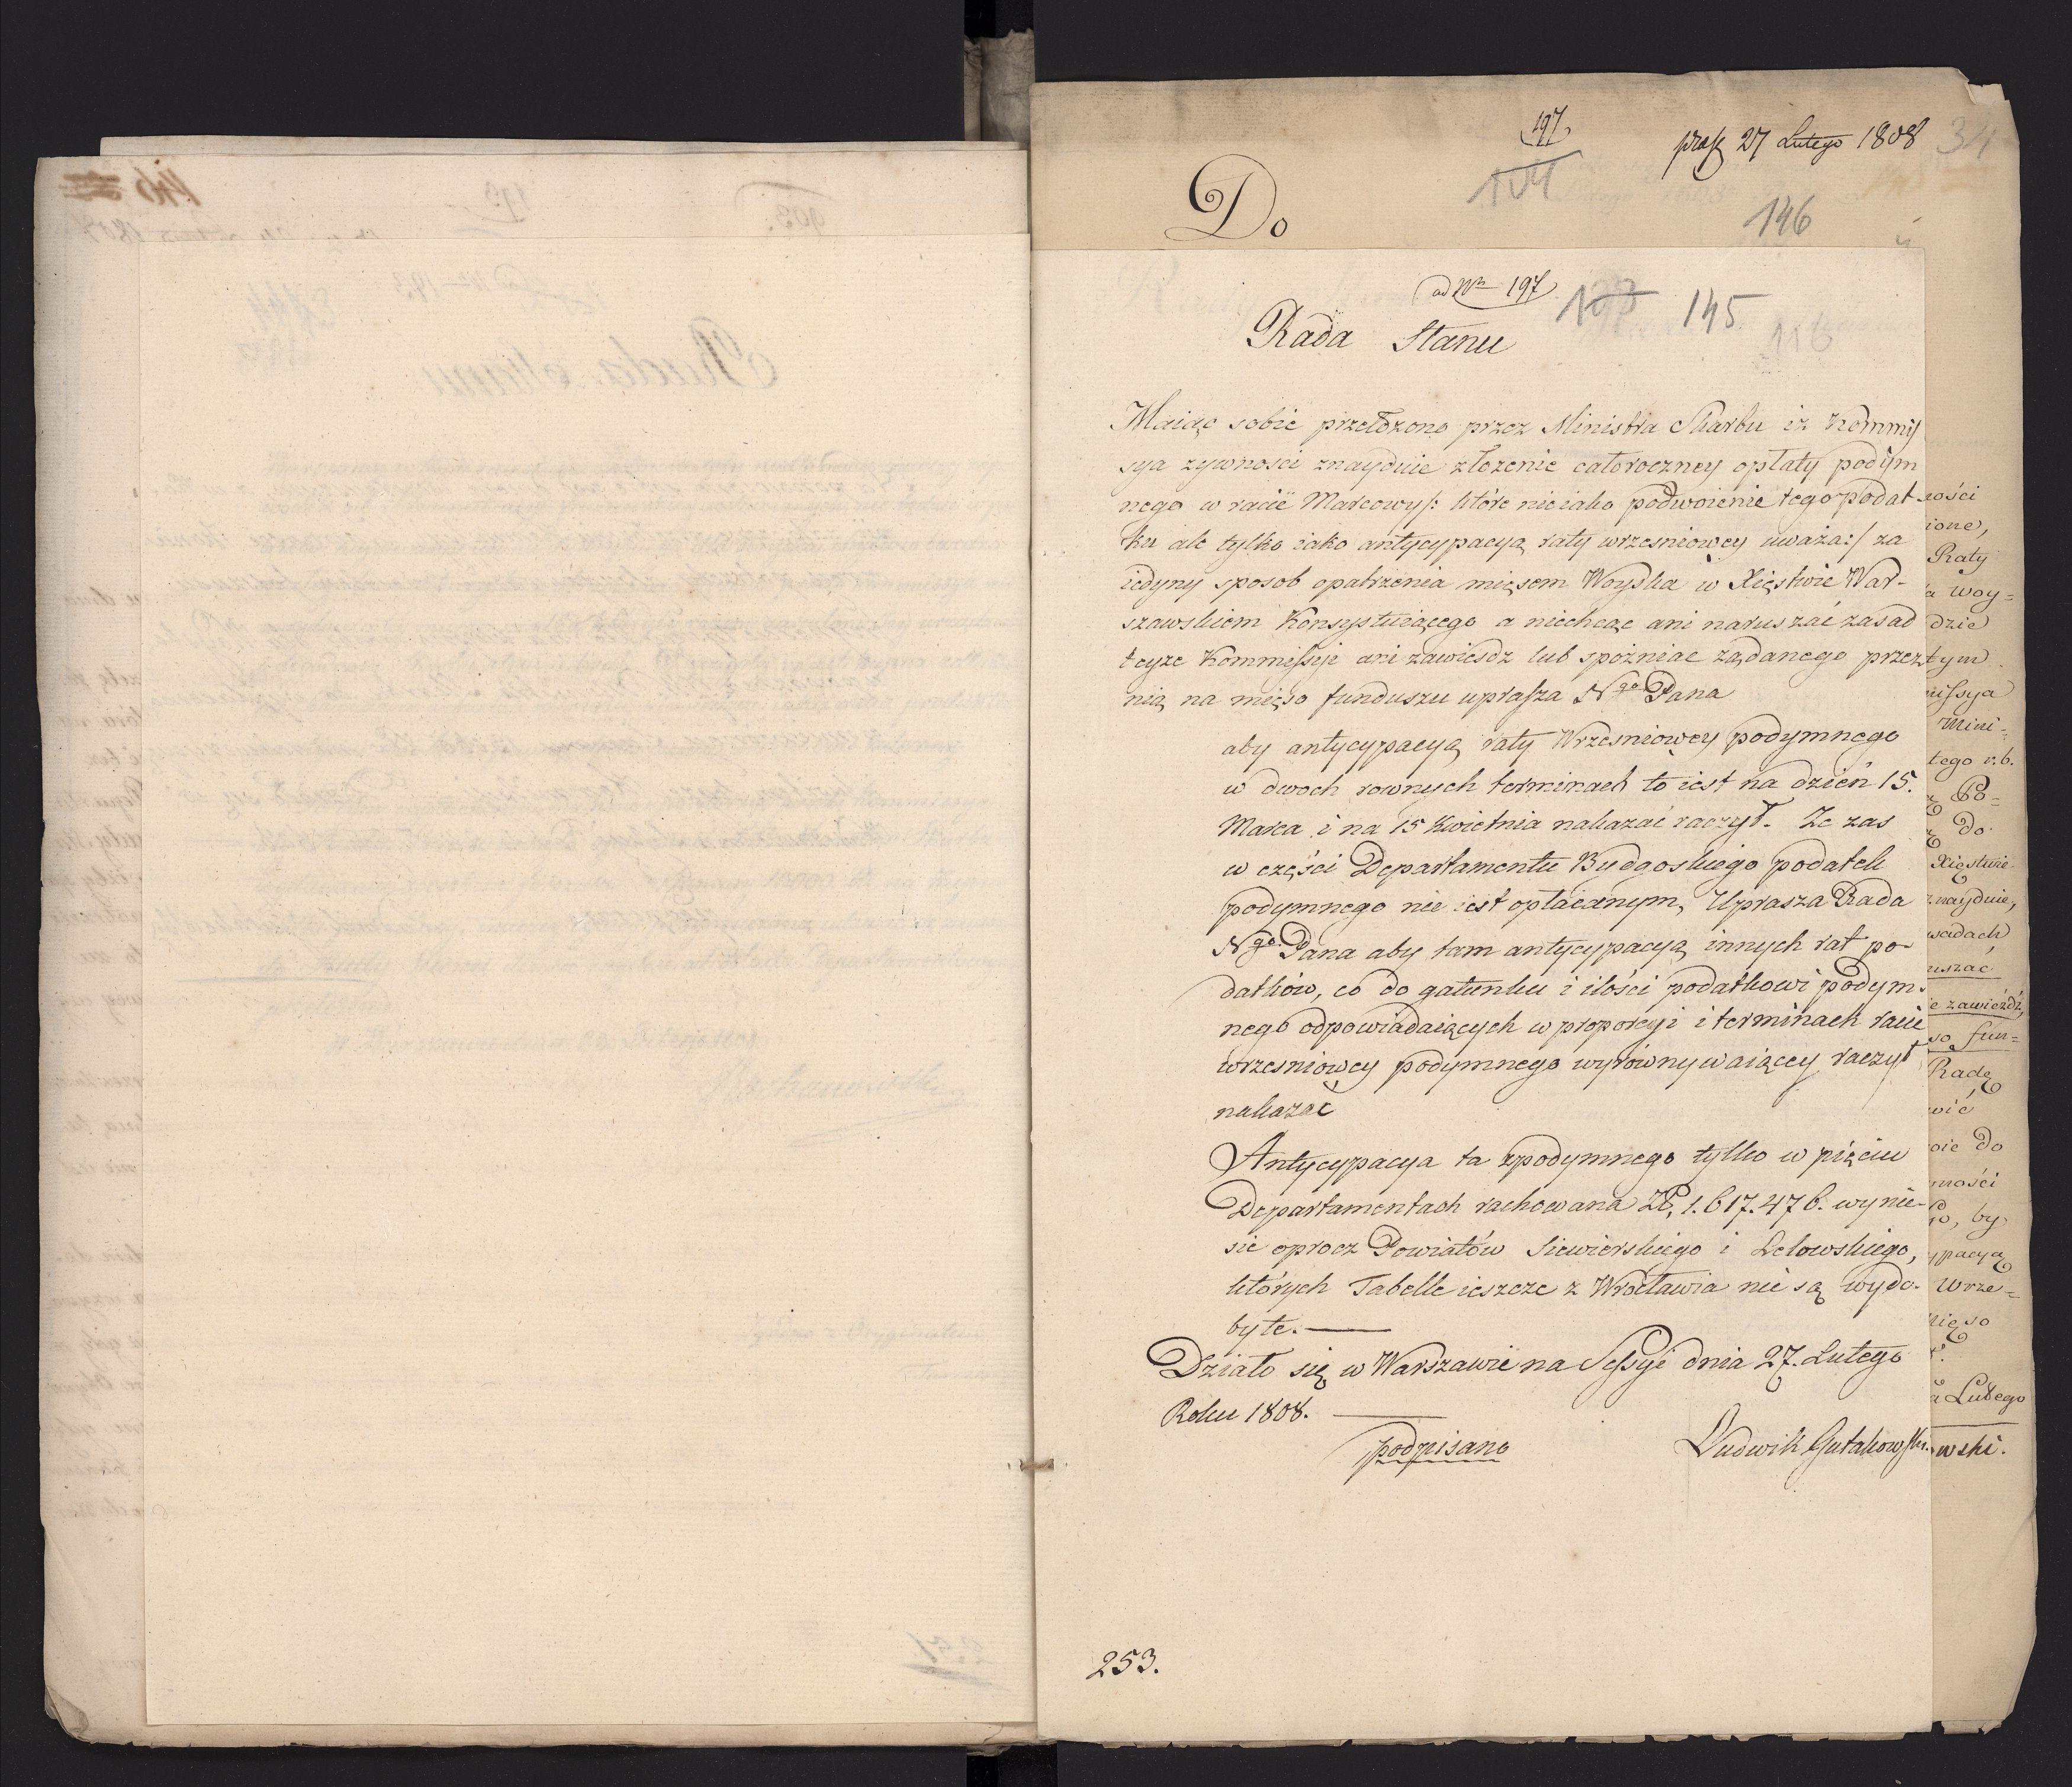 197
praes 27 Lutego 1808
34
104
146
Do
ad Nr 197
103 145
116
Rada Stanu
Maiąc sobie przełożono przez Ministra Skarbu iż Kommis
sya żywnosci znayduie złożenie całoroczney opłaty podym
nego w racie Marcowy/: które nieiako podwoienie tego podat
ku ale tylko iako antycypacyą raty wrzesniowey uważa:/ za
iedyny sposob opatrzenia mięsem Woyska w Xięstwie War-
szawskiem Konsystuiącego a niechcąc ani naruszać zasad
teyże Kommissyi ani zawiesdz lub spoźniac żądanego przez
nią na mięso funduszu uprasza Ngo Pana
aby antycypacyą raty Wrzesniowey podymnego
w dwoch rownych terminach to iest na dzień 15.
Marca i na 15 Kwietnia nakazać raczył. Że zas
w części Departamentu Bydgoskiego podatek
podymnego nie iest opłacanym, Uprasza Rada
Ngo Pana aby tam antycypacyą innych rat po-
datków, co do gatunku i ilości podatkowi podym-
nego odpowiadaiących w proporcyi i terminach racie
wrzesniowey podymnego wyrównywaiącey raczył
nakazać
Antycypacya ta zpodymnego tylko w pięciu
Departamentach rachowana Zł. 1.617.476. wynie-
sie oprocz Powiatów Siewierskiego i Lelowskiego,
których Tabelle ieszcze z Wrocławia nie są wydo-
byte.
Działo się w Warszawie na Sessyi dnia 27. Lutego
Roku 1808.
podpisano Ludwik Gutakowski.
253.
ności
ione,
Raty
a woy=
dzie
tym
missya
Mini=
tego r.b.
Po=
do
Xięstwie
znayduie,
sadach
uszać
e zawieźdź,
so fun=
Radę
wić
oie do
mości
go, by
ypacyą
Wrze=
mięso
a Lutego
owski.